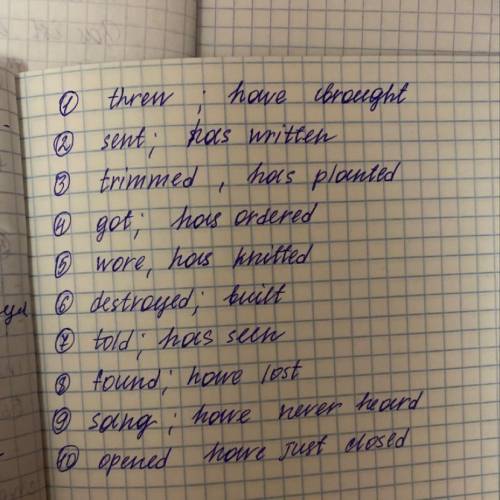 ① threw ; have brought
② sent; has written
③ trimmed , has planted
④ got; has ordered
⑤ wore, has knitted
⑥ destroyed; built
⑦ told; has seen
⑧ found; have lost
⑨ sang ; have never heard
⑩ opened have just closed